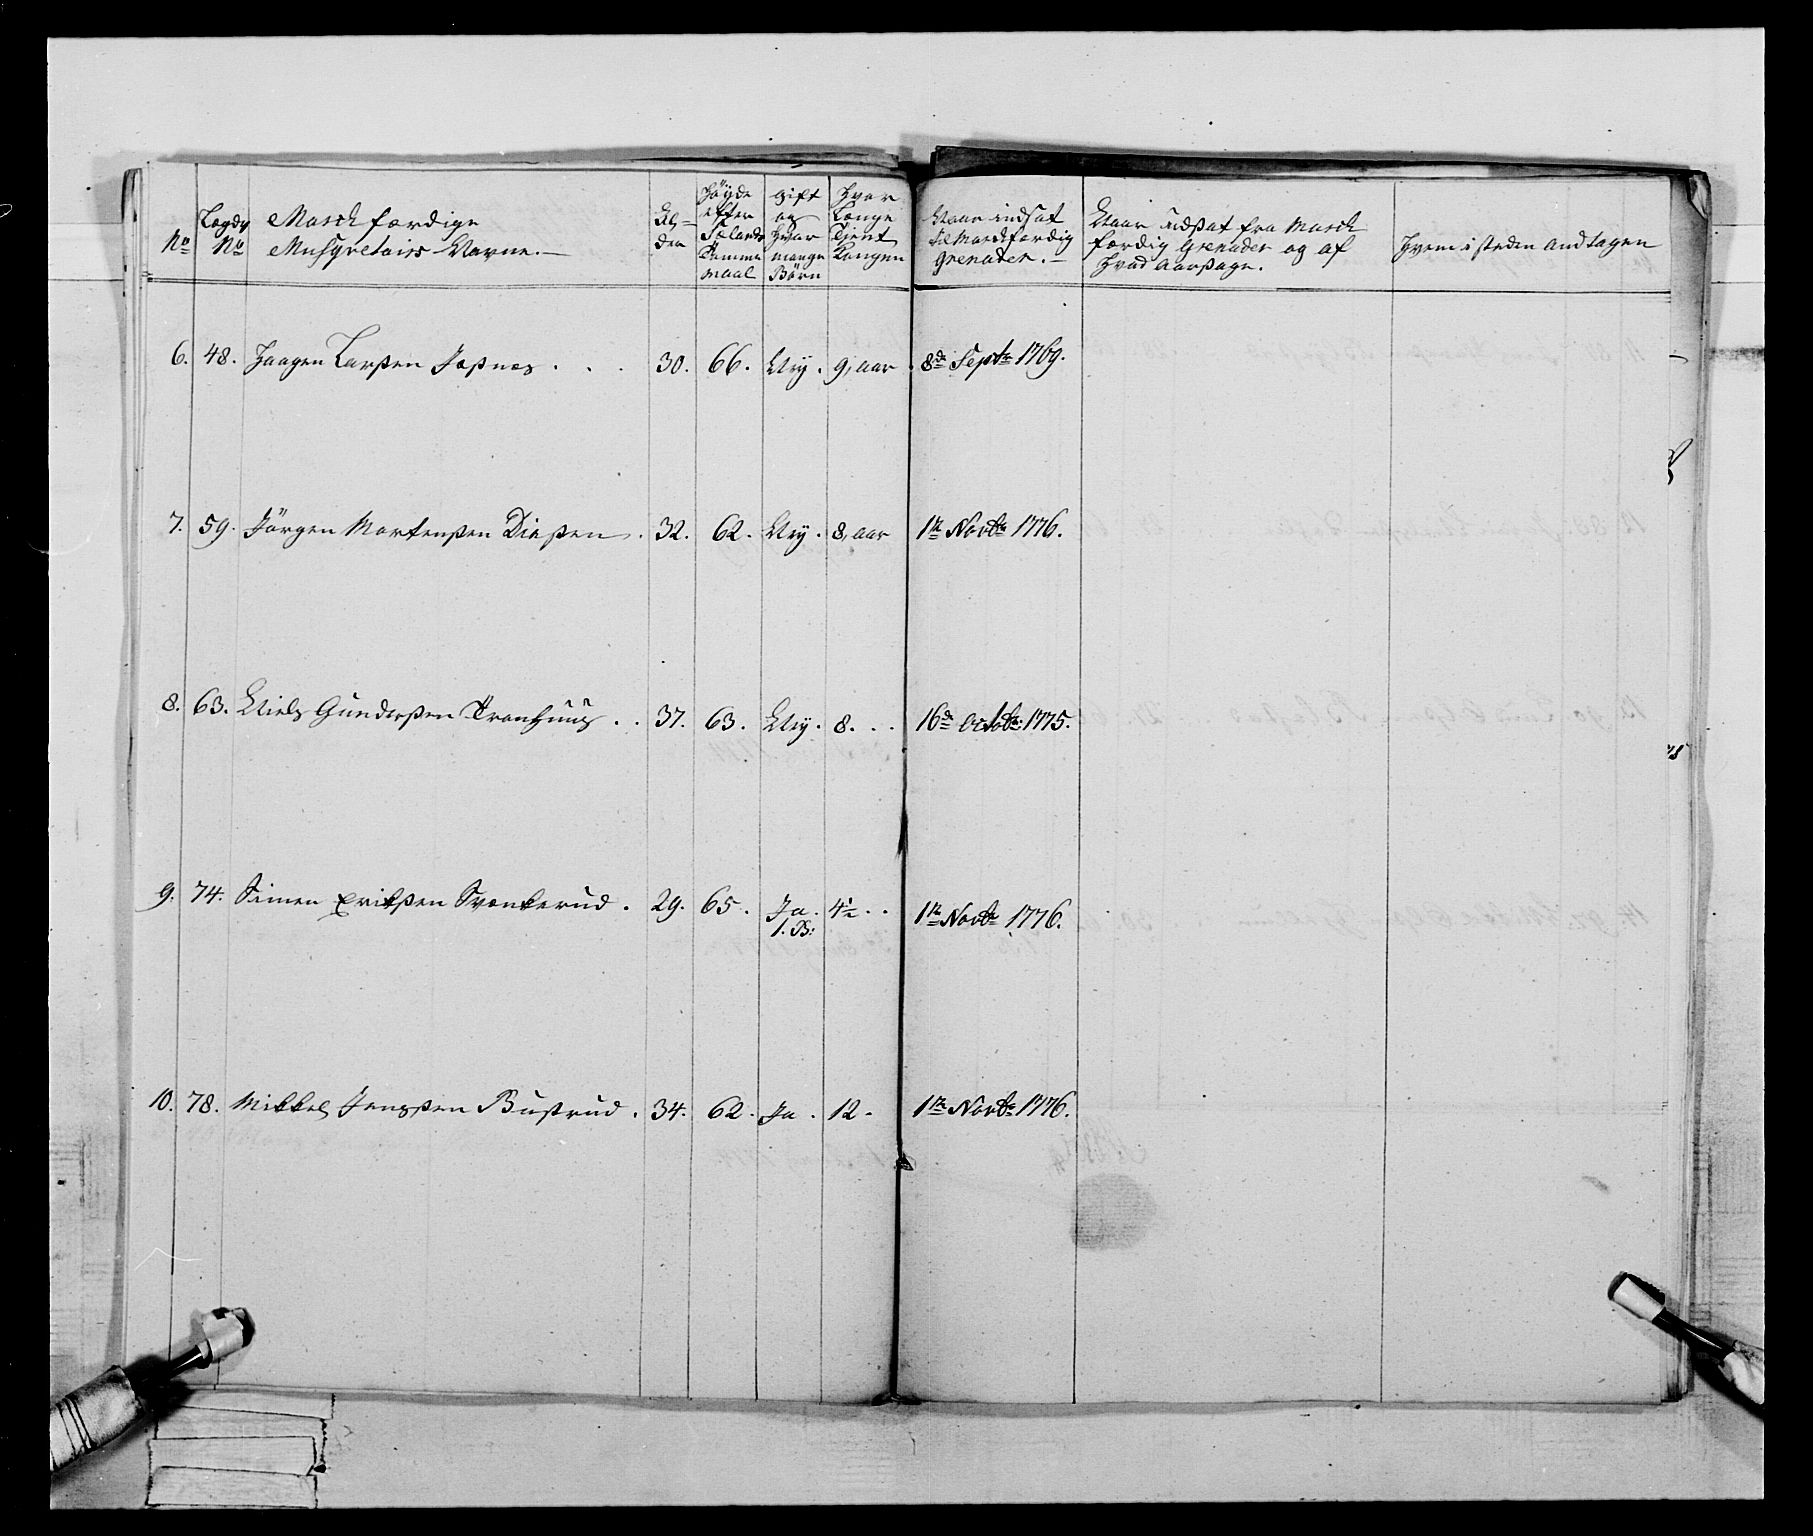 No
Legdz No
March færdige
Musqvetairs Navne. —
Al-
der
Höyde
efter
Sælands
Tomme
Maal
Gift
og
Hvor
mange
Börn
Hvor
Længe
Tient
Kongen
Naar indsat
til Marchfærdig
Grenader. —
Naar udsat fra March
færdig Grenader og af
Hvad Aarsage.
Hvem i steden andtagen
6. 48. Haagen Larsen Jessnes . . . 30. 66. Ney. 9, aar 8de Septr 1769.
7. 59. Jörgen Mortensen Diesen . 32. 62. Ney. 8, aar 1te Novbr 1776.
8. 63. Niels Gundersen Tronhuus . . 37. 63. Ney. 8. . . 16de Octobr 1775.
9. 74. Simen Eriksen Svenkerud . 29. 65. Ja. 4½ . . 1te Novbr 1776.
1. B:
10. 78. Mikkel Jensen Bustrud . 34. 62. Ja. 12. 1te Novbr 1776.